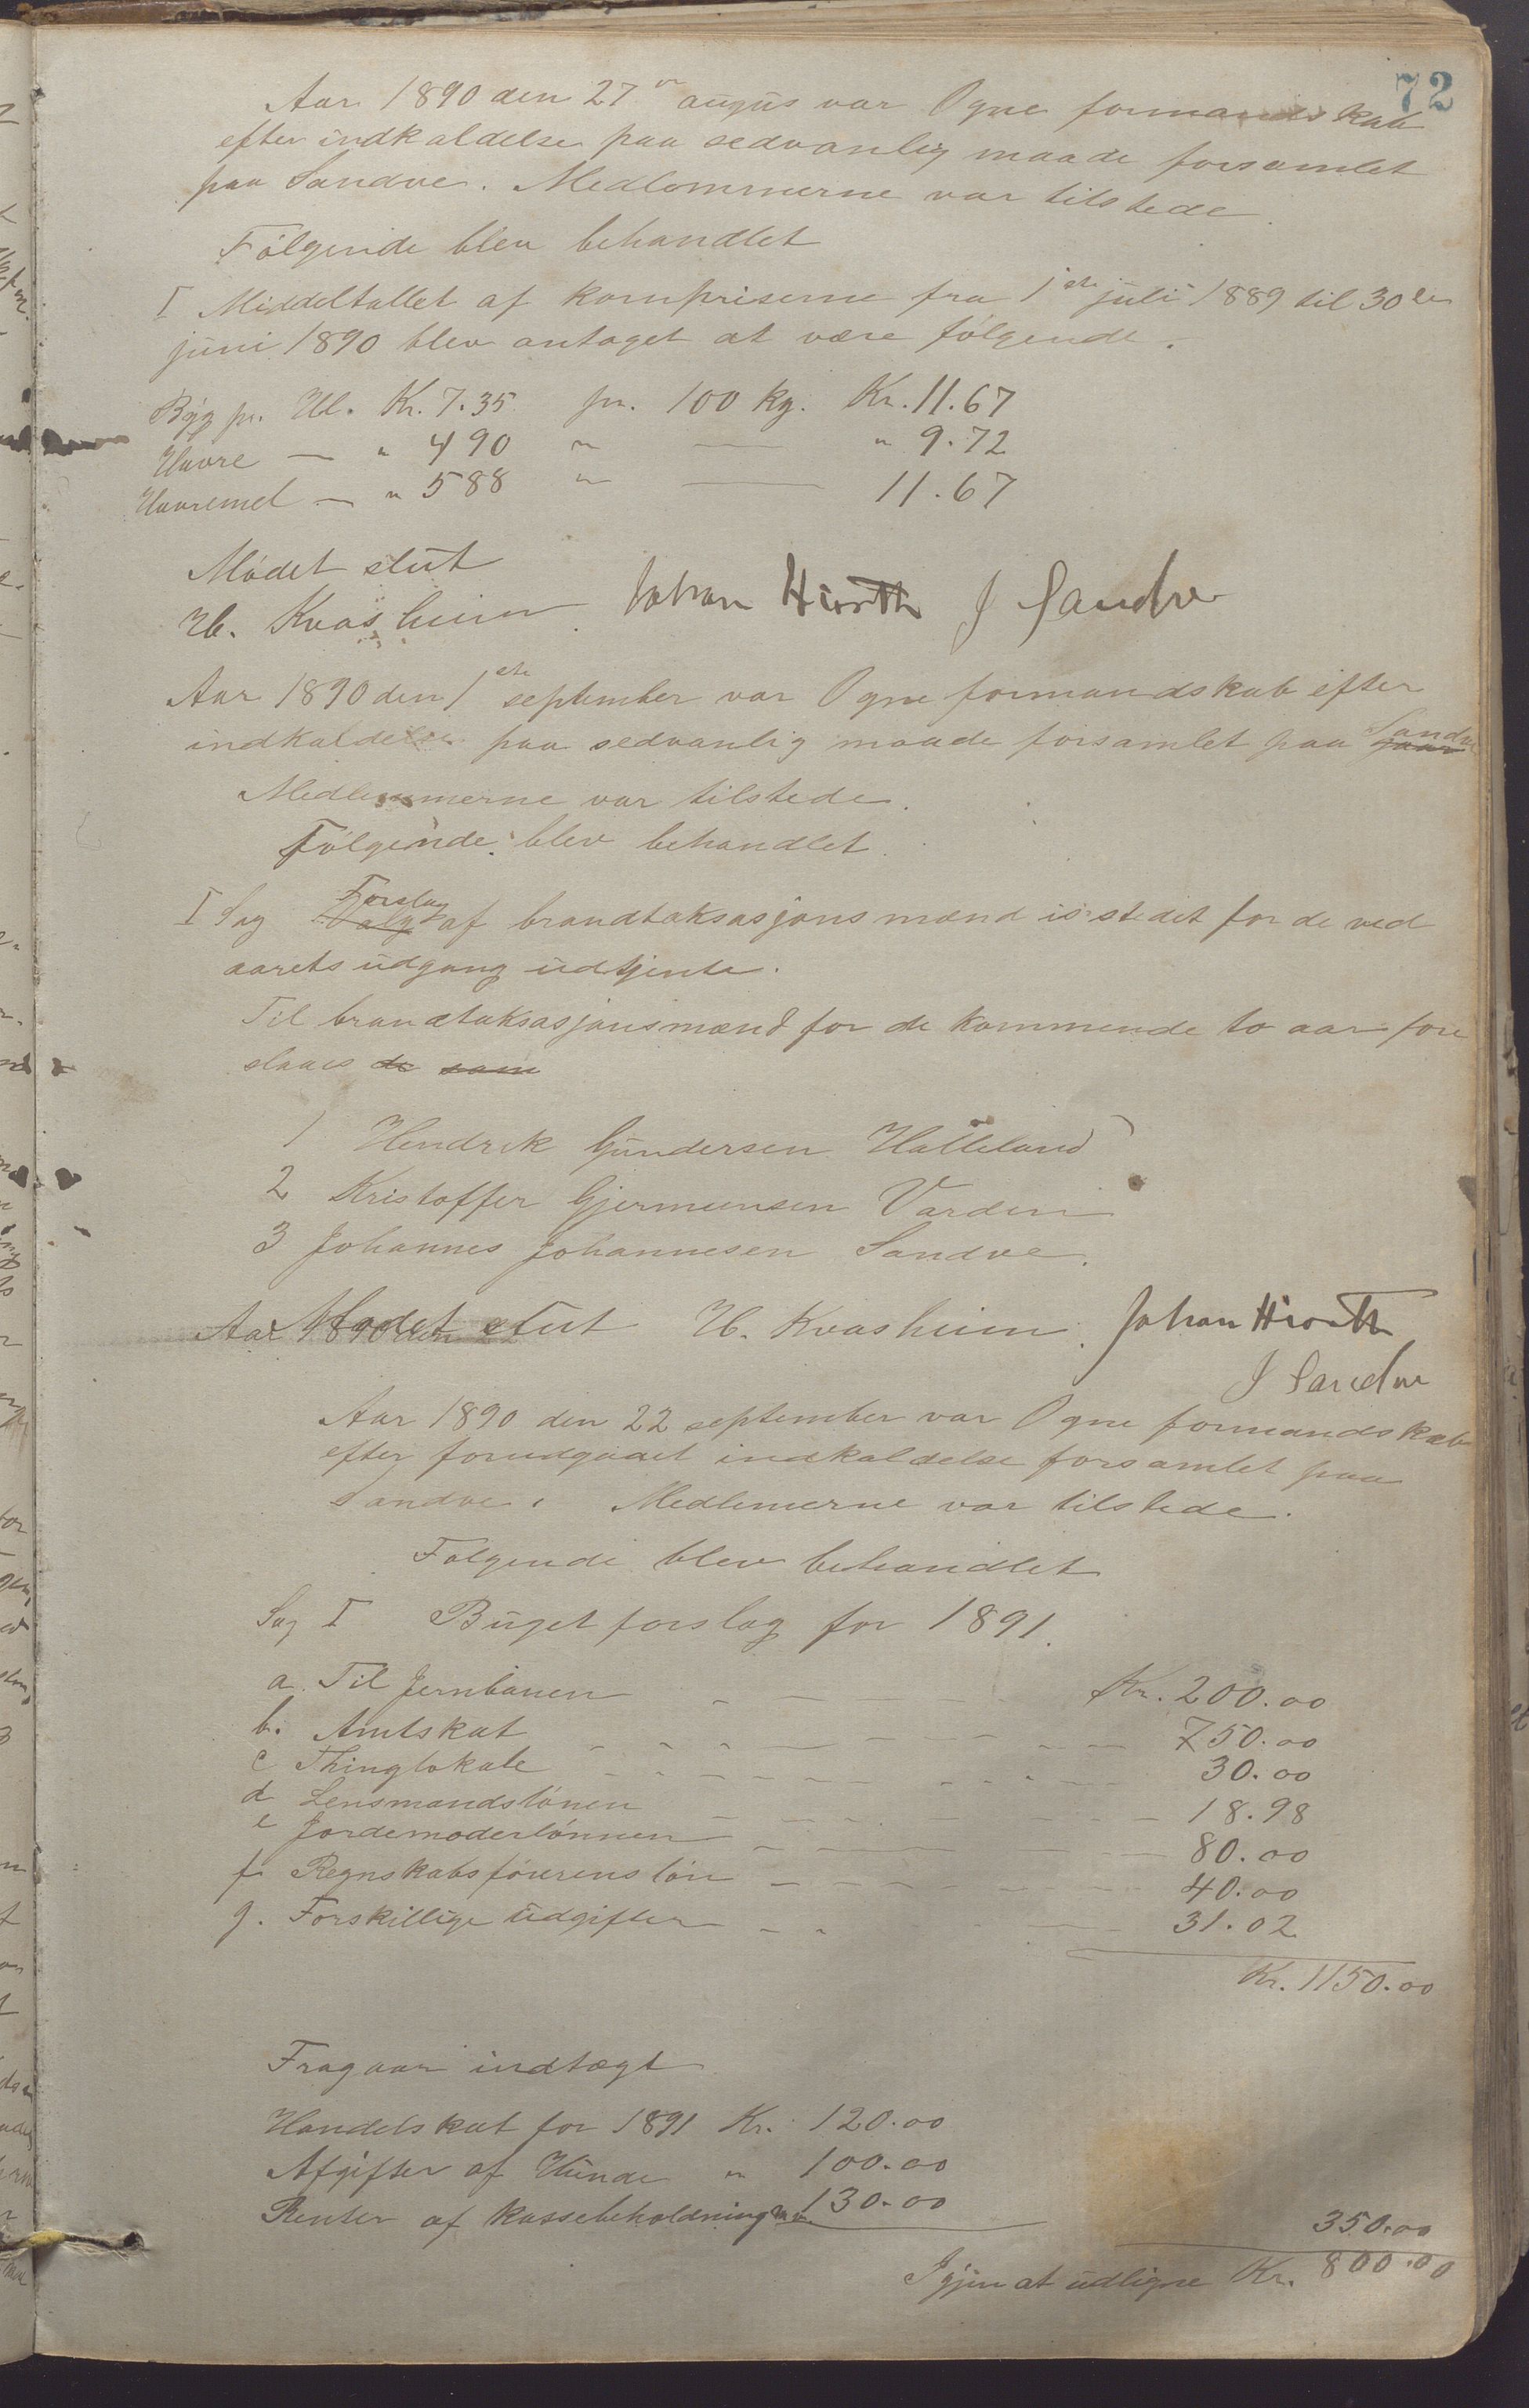 72
Aar 1890 den 27de augus var Ogne formandskab
efter indkaldelse paa sedvanlig maade forsamlet
paa Sandve. Medlommerne var tilstede.
Følgende blev behandlet
I Middeltallet af kornpriserne fra 1ste juli 1889 til 30te
juni 1890 blev antaget at være følgende.
Byg pr. Hl. Kr. 7.35 pr. 100 kg. Kr. 11.67
Havre — " 490 " — " 9.72
Havremel — " 588 " — 11.67
Mødet slut
H. Kvasheim Johan Hiorth J Sandve
Aar 1890 den 1ste september var Ogne formandskab efter
indkaldelse paa sedvanlig maade forsamlet paa Sandve
Medlemmerne var tilstede.
Følgende blev behandlet.
I Sag Forslag Valg af brandtaksasjonsmænd istedet for de ved
aarets udgang udtjente.
Til brandtaksasjonsmænd for de kommende to aar fore
slaaes de som
1 Hendrik Gundersen Halleland
2 Kristoffer Gjermunsen Varden
3 Johannes Johannesen Sandve.
Aar 1890 den Mødet slut H. Kvasheim. Johan Hiorth
J Sandve
Aar 1890 den 22 september var Ogne formandskab
efter forudgaaet indkaldelse forsamlet paa
Sandve. Medlemerne var tilstede.
Følgende blev behandlet
Sag I Buget forslag for 1891.
a. Til Jernbanen — Kr. 200.00
b. Amtskat — 750.00
c Thinglokale — 30.00
d Lensmandslönen — 18.98
e Jordemoderlönnen — 80.00
f. Regnskabsförerens lön — 40.00
g. Forskillige udgifter — 31.02
Kr. 1150.00
Fragaar indtægt
Handelskat for 1891 Kr. 120.00
Afgifter af Hunde " 100.00
Renter af kassebeholdning m.v. 130.00
350.00
Igjen at udligne Kr. 800.00